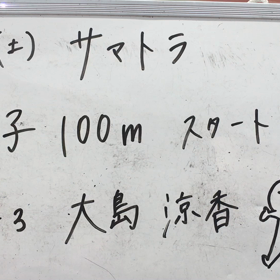 (土) サマトラ
子 100m スタート
3 大島 涼香